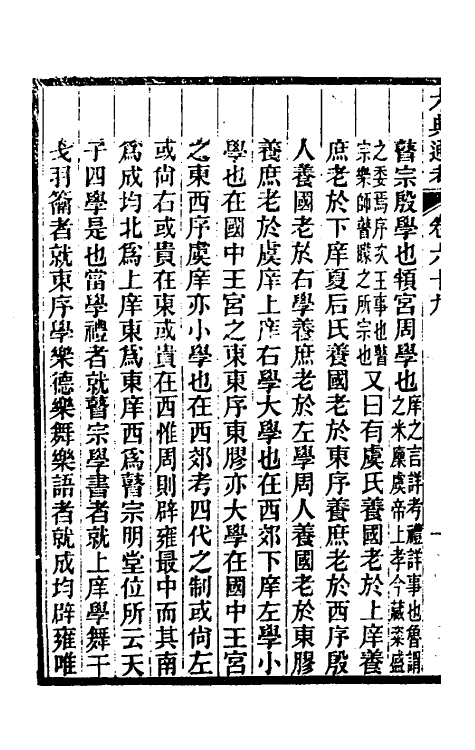 六典通考 卷六十九 一
瞽宗殷學也頖宮周學也庠之言詳考禮詳事也魯謂之米廩虞帝上孝今藏粢盛
之委焉序次王事也瞽宗樂師瞽矇之所宗也又曰有虞氏養國老於上庠養
庶老於下庠夏后氏養國老於東序養庶老於西序殷
人養國老於右學養庶老於左學周人養國老於東膠
養庶老於虞庠上庠右學大學也在西郊下庠左學小
學也在國中王宮之東東序東膠亦大學在國中王宮
之東西序虞庠亦小學也在西郊考四代之制或尙左
或尙右或貴在東或貴在西惟周則辟雍最中而其南
爲成均北爲上庠東爲東庠西爲瞽宗明堂位所云天
子四學是也當學禮者就瞽宗學書者就上庠學舞干
戈羽籥者就東序學樂德樂舞樂語者就成均辟雍唯